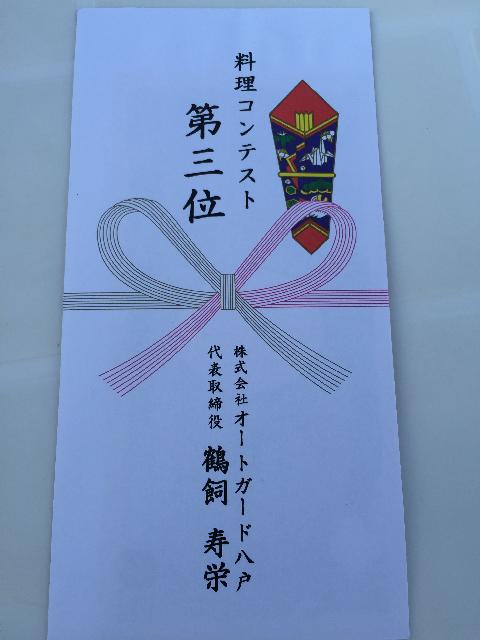 料理コンテスト
第三位
株式会社オートガード八戸
代表取締役 鶴飼 寿栄